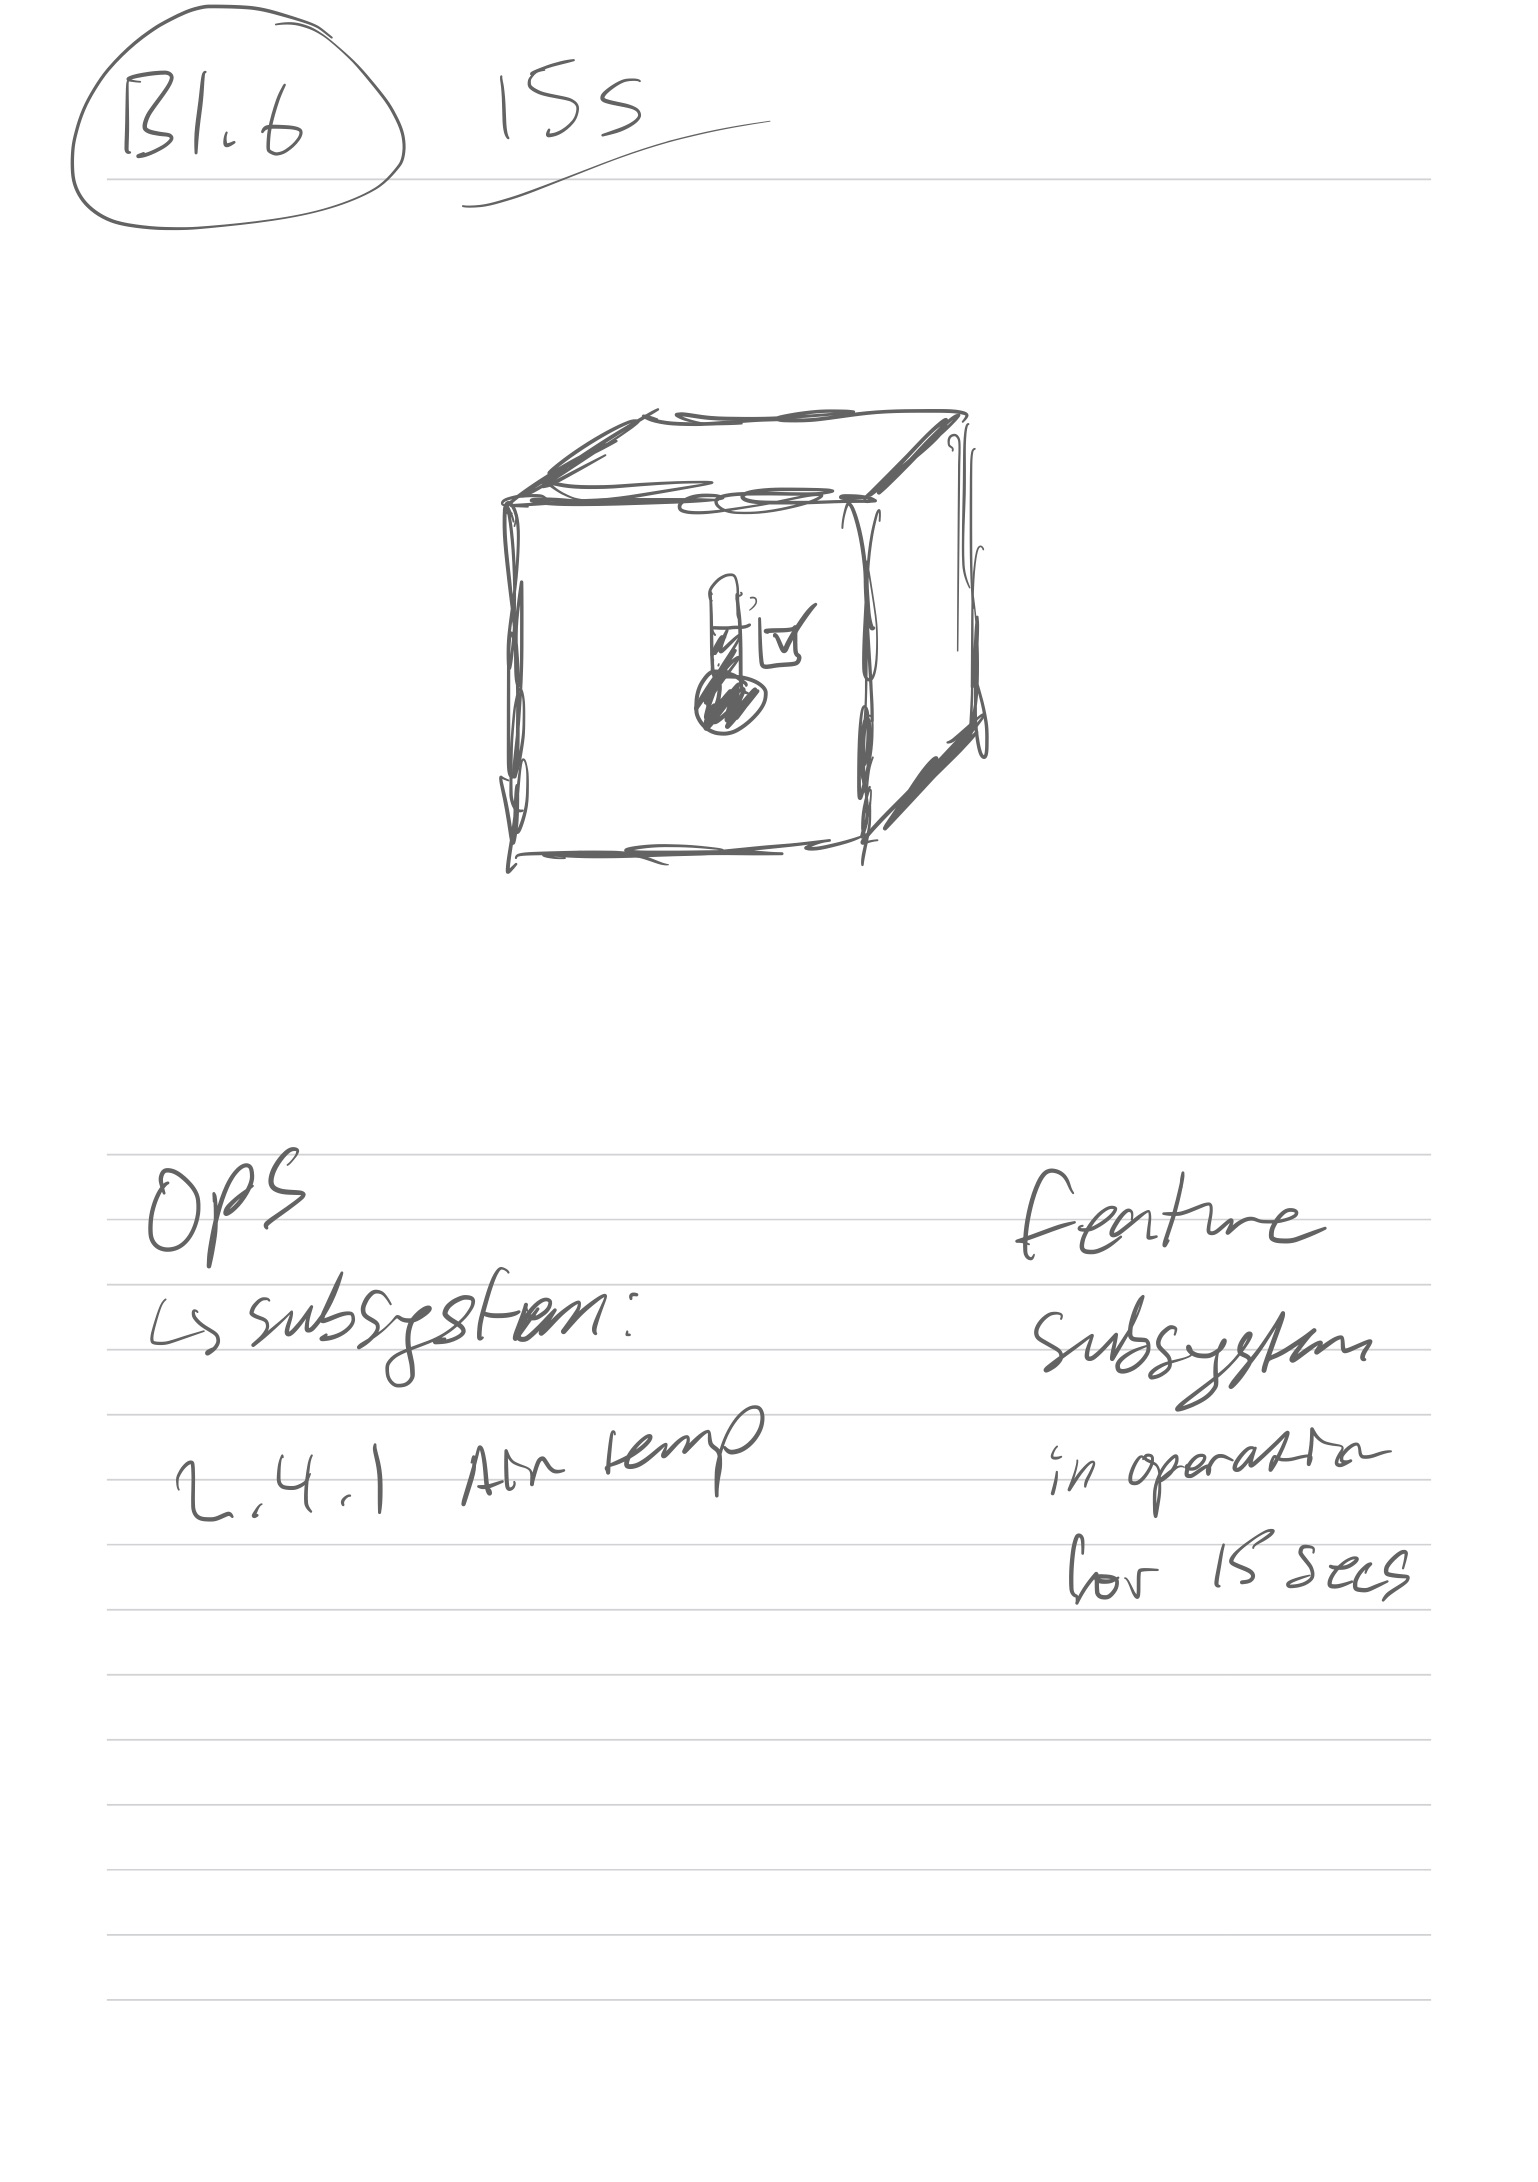 B1.6 15s
Ops
↳ subsystem:
2.4.1 Air temp
feature
subsystem
in operation
for 15 secs